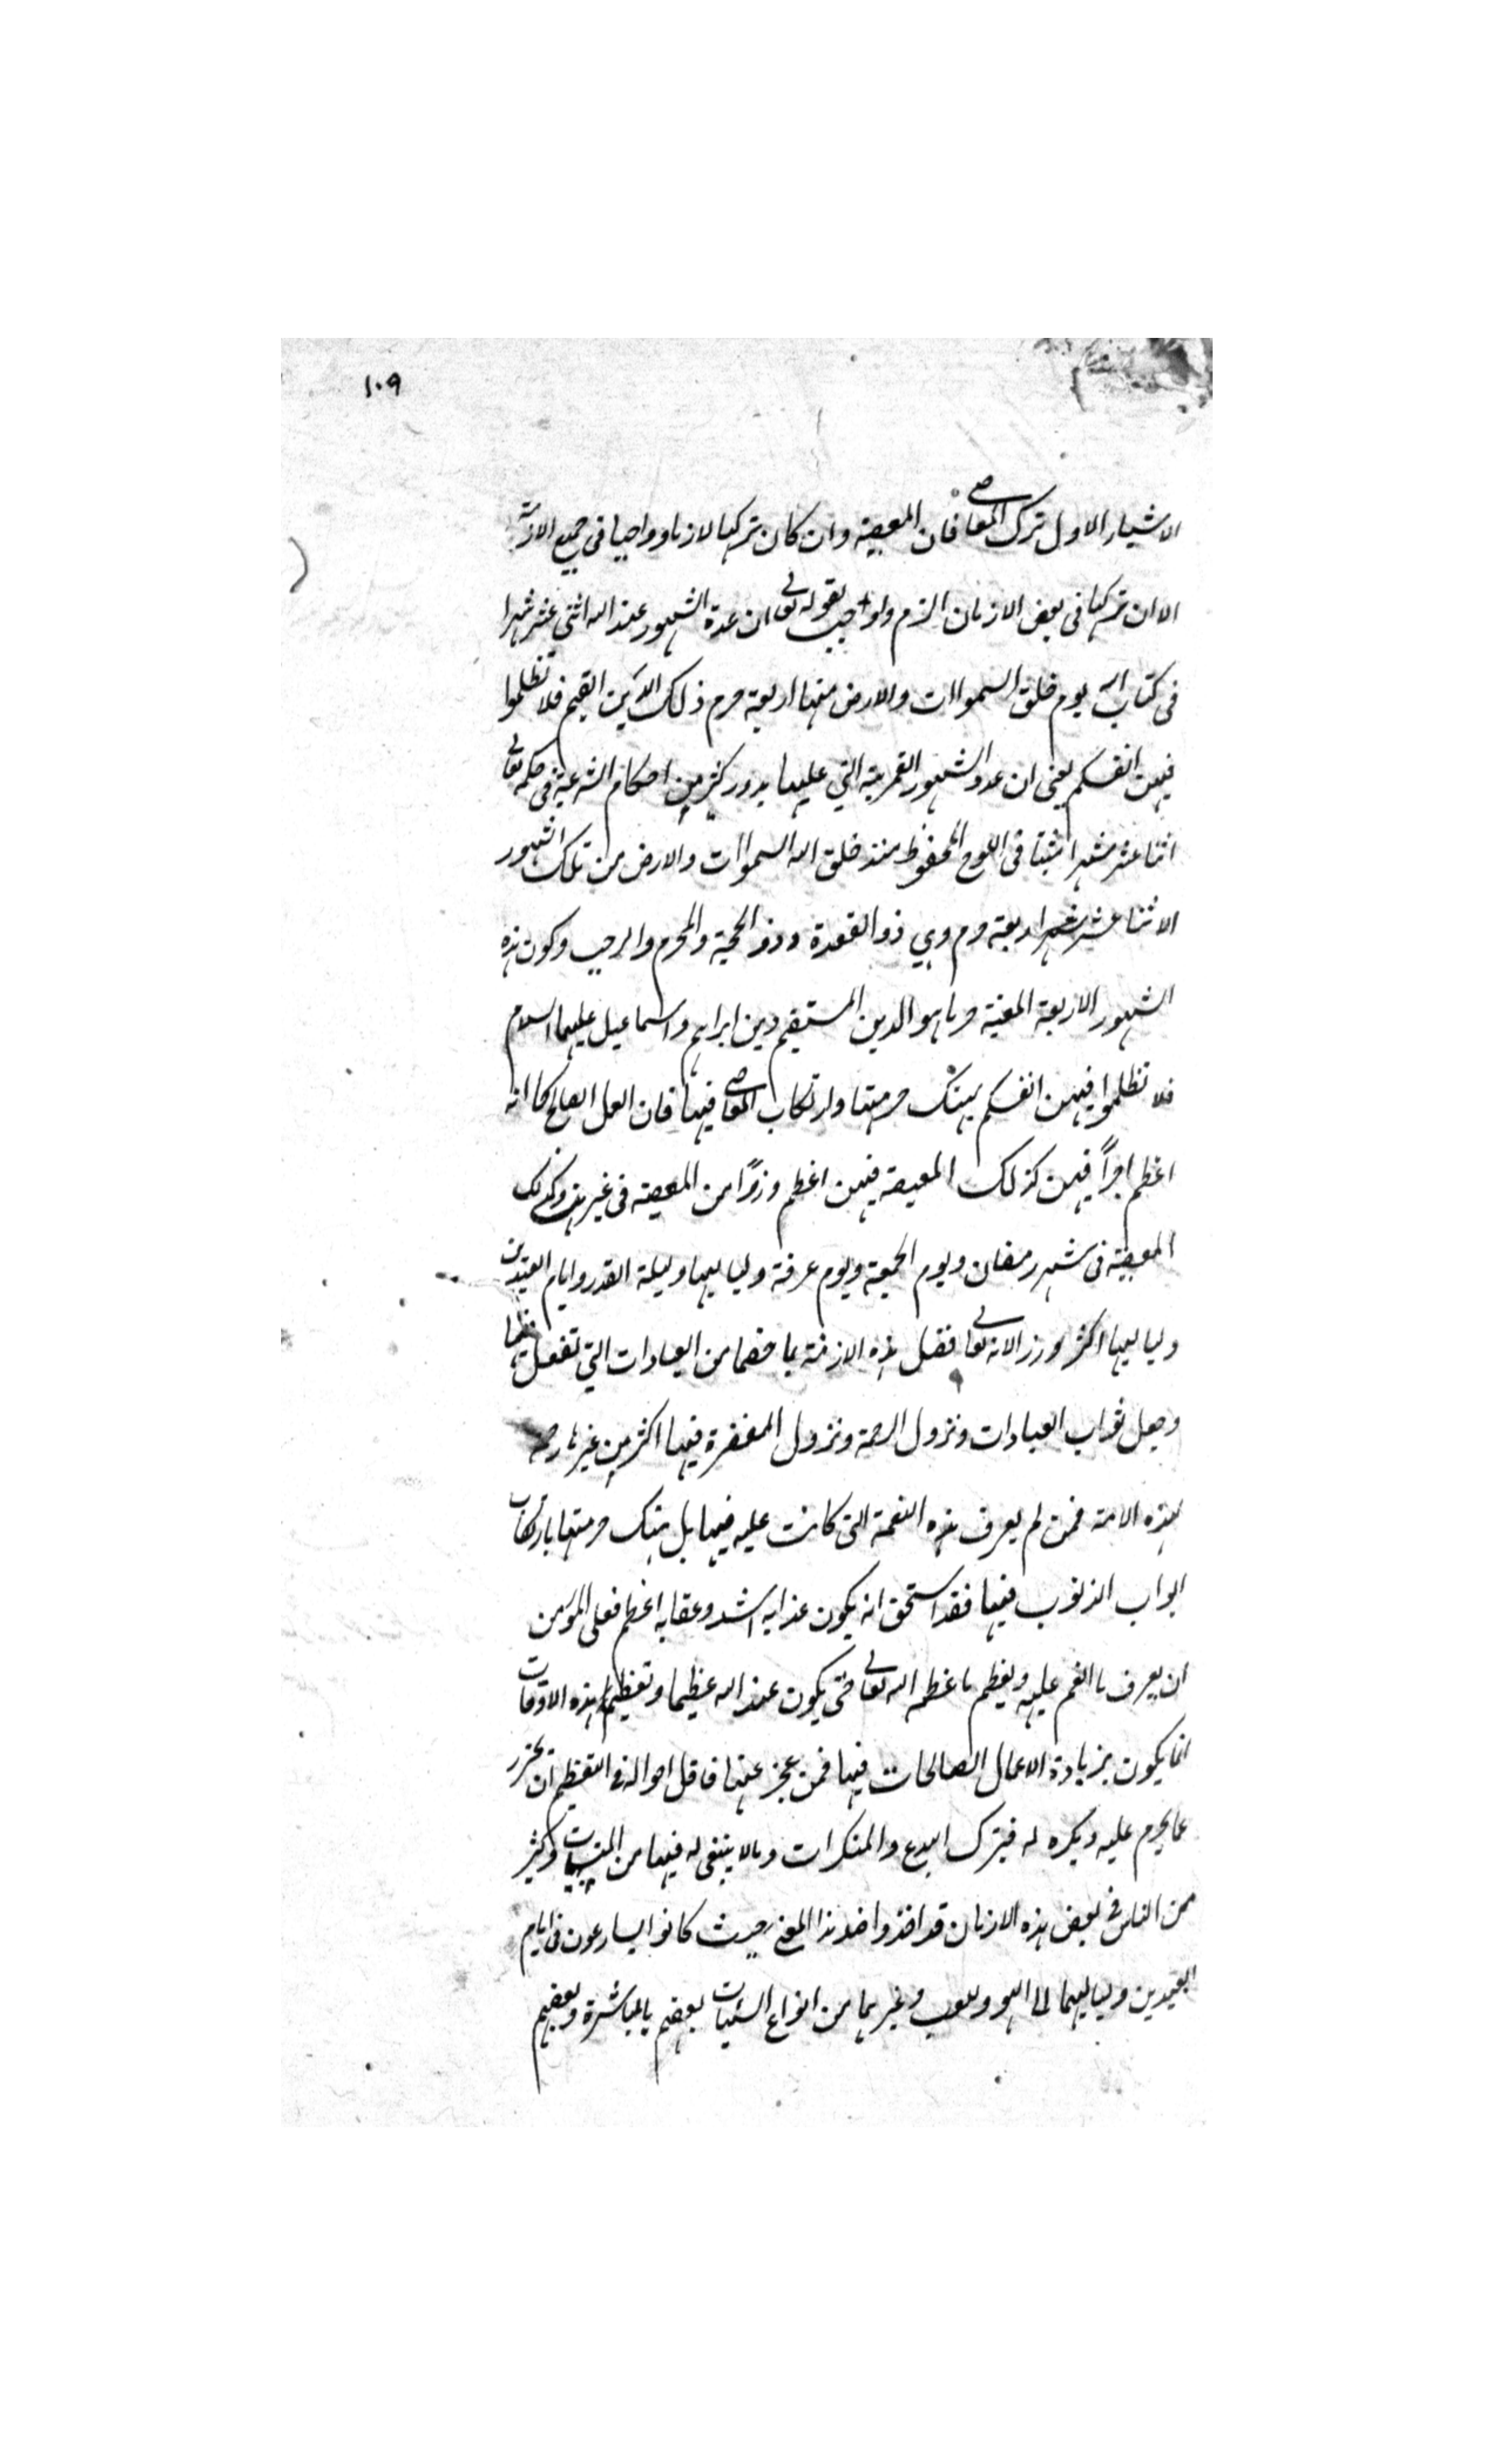 ١٠٩
الاشياء الاول ترك المعاصى فان المعصية وان كان تركها لازما وواجبا فى جميع الازمنة
الا ان تركها فى بعض الازمان الزم واوجب لقوله تعالى ان عدة الشهور عند الله اثنى عشر شهرا
فى كتاب الله يوم خلق السموات والارض منها اربعة حرم ذلك الدين القيم فلا تظلموا
فيهن انفسكم يعنى ان عدد الشهور القمرية التي عليها يدور كثير من احكام الشرعية فى حكمه تعالى
اثنا عشر شهرا مثبتا فى اللوح المحفوظ منذ خلق الله السموات والارض من تلك الشهور
الاثنا عشر شهرا اربعة حرم وهي ذو القعدة وذو الحجية والمحرم والرجب وكون هذه
الشهور الاربعة المعينة حرما هو الدين المستقيم دين ابراهيم واسماعيل عليهما السلام
فلا تظلموا فيهن انفسكم بهتك حرمتها وارتكاب المعاصى فيها فان العمل الصالح كما انه
اعظم اجراً فيهن كذلك المعيصة فيهن اعظم وزرًا من المعصية فى غيرهن وكذلك
المعصية فى شهر رمضان ويوم الجمعة ويوم عرفة ولياليها وليلة القدر وايام العيدين
ولياليها اكثر وزر الانه تعالى فضل هذه الازمنة بما خصها من العبادات التي تفعل فيها
وجعل ثواب العبادات ونزول الرحمة ونزول المغفرة فيها اكثر من غيرها رحمة
لهذه الامة فمن لم يعرف هذه النعمة التى كانت عليه فيها بل هتك حرمتها بارتكاب
ابواب الذنوب فيها فقد استحق انه يكون عذابه اشد وعقابه اعظم فعلى المؤمن
ان يعرف ما انعم عليه ويعظم ما عظمه الله تعالى حتى يكون عند الله عظيما وتعظيم هذه الاوقات
انما يكون بزيادة الاعمال الصالحات فيها فمن عجز عنها فاقل احواله فى التعظيم ان يحترز
عما يحرم عليه ويكره له فيترك البدع والمنكرات وما لا ينبغى له فيها من المنهيات وكثير
من الناس فى بعض هذه الازمان قد اخذوا ضد هذا المعنى حيث كانوا يسارعون فى ايام
العيدين ولياليهما الى اللهو وللعب وغيرهما من انواع السيئات بعضهم بالمباشرة وبعضهم